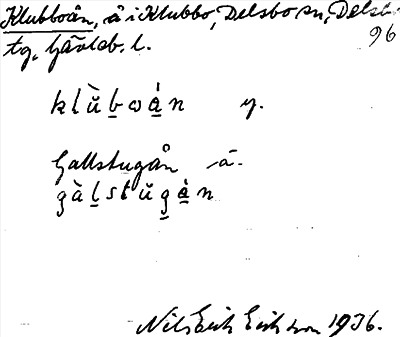 Klubboån, å i Klubbo, Delsbo sn, Delsbo
tg, Gävleb. l.
96
klŭbωån y.
Gallstugån å.
gàlstŭgån
Nils Erik Eriksson 1936.